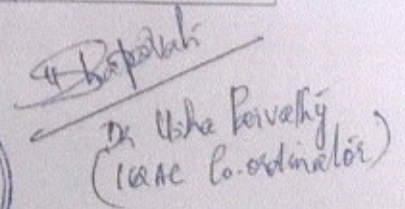 Dr Usha Parvathy
(IQAC Co-ordinator)